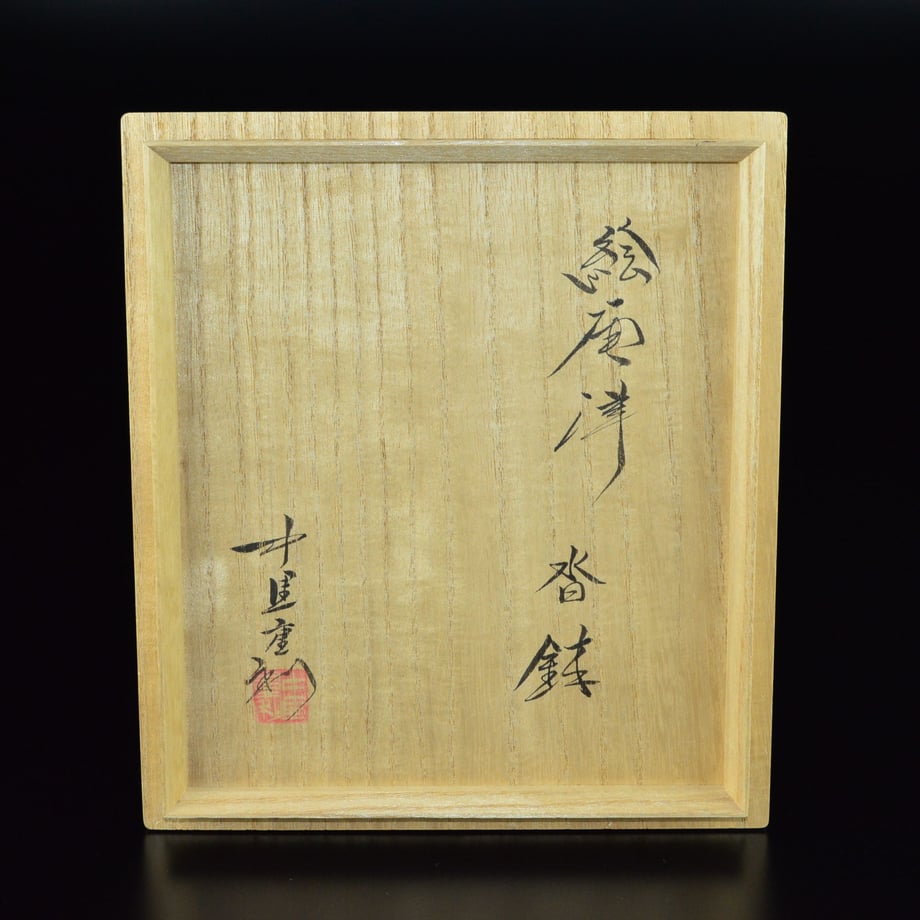 絵唐津
沓鉢
中里重利